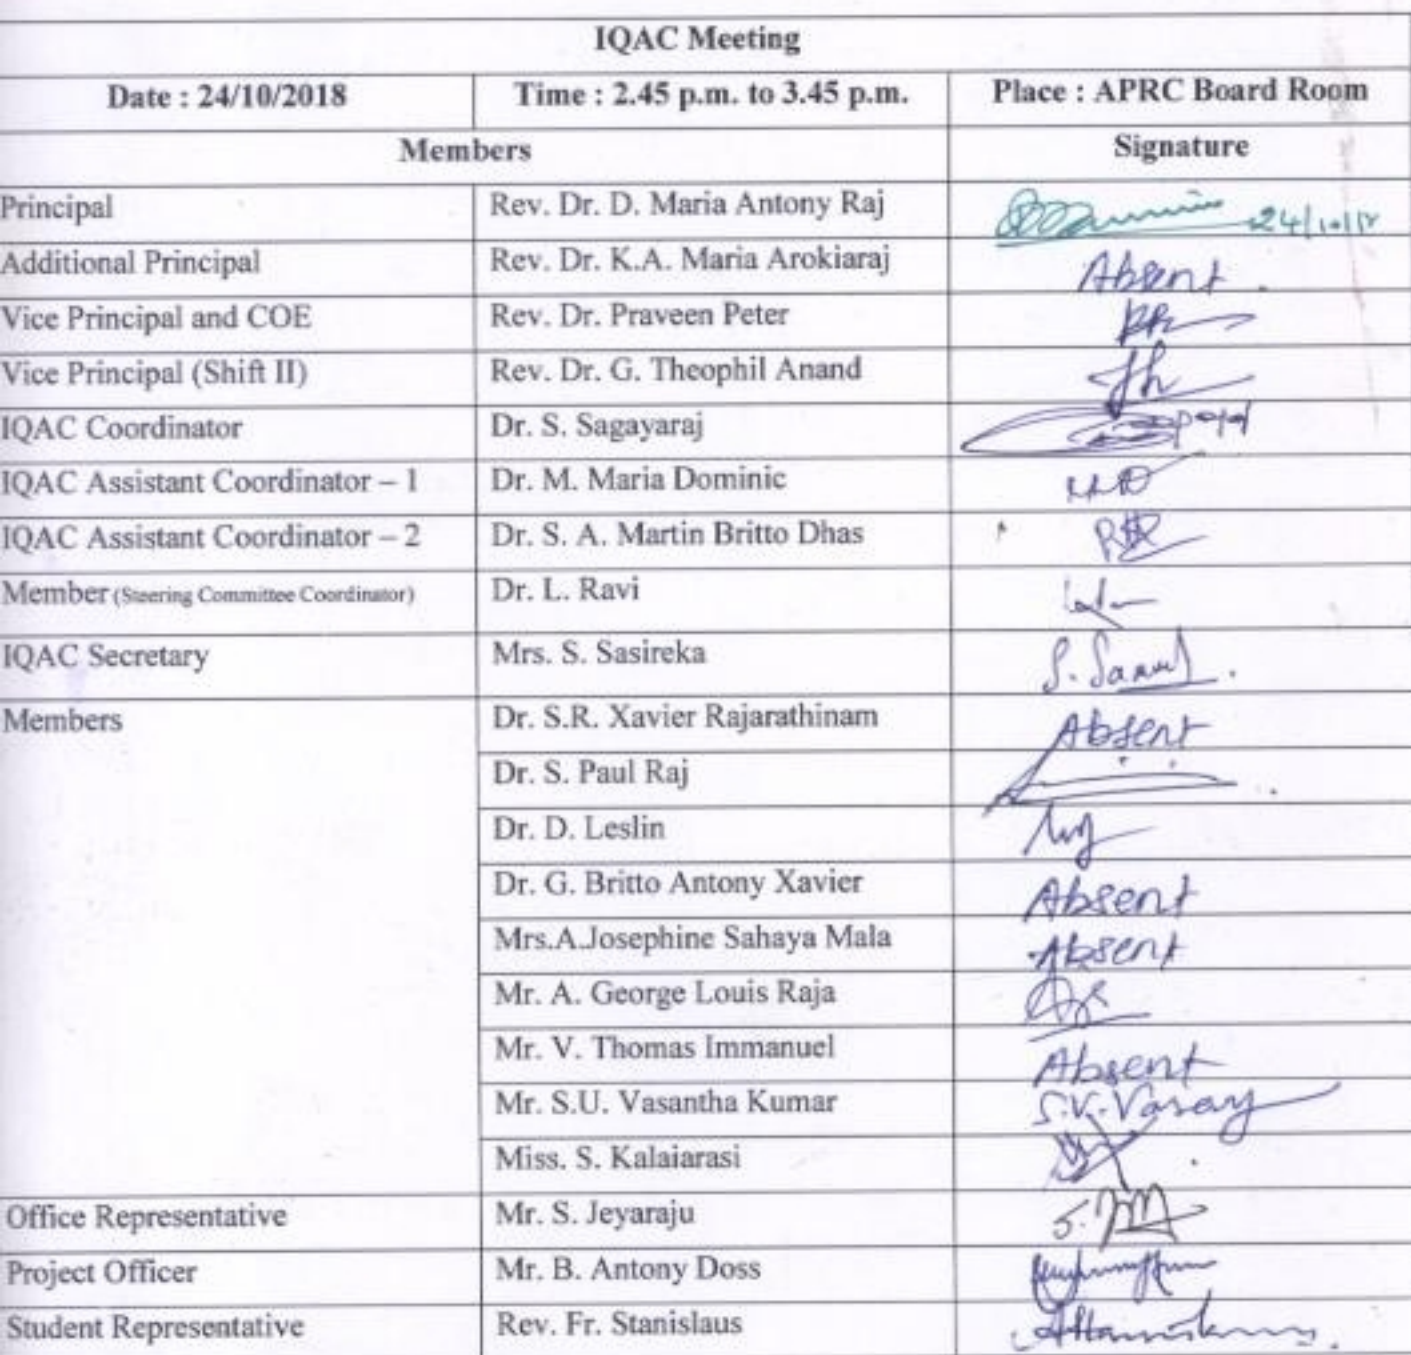 IQAC Meeting
Date : 24/10/2018 Time : 2.45 p.m. to 3.45 p.m. Place : APRC Board Room
Members Signature
Principal Rev. Dr. D. Maria Antony Raj
Additional Principal Rev. Dr. K.A. Maria Arokiaraj Absent.
Vice Principal and COE Rev. Dr. Praveen Peter
Vice Principal (Shift II) Rev. Dr. G. Theophil Anand
IQAC Coordinator Dr. S. Sagayaraj
IQAC Assistant Coordinator – 1 Dr. M. Maria Dominic
IQAC Assistant Coordinator – 2 Dr. S. A. Martin Britto Dhas
Member (Steering Committee Coordinator) Dr. L. Ravi
IQAC Secretary Mrs. S. Sasireka
Members Dr. S.R. Xavier Rajarathinam Absent
Dr. S. Paul Raj
Dr. D. Leslin
Dr. G. Britto Antony Xavier Absent
Mrs.A.Josephine Sahaya Mala Absent
Mr. A. George Louis Raja
Mr. V. Thomas Immanuel Absent
Mr. S.U. Vasantha Kumar
Miss. S. Kalaiarasi
Office Representative Mr. S. Jeyaraju
Project Officer Mr. B. Antony Doss
Student Representative Rev. Fr. Stanislaus